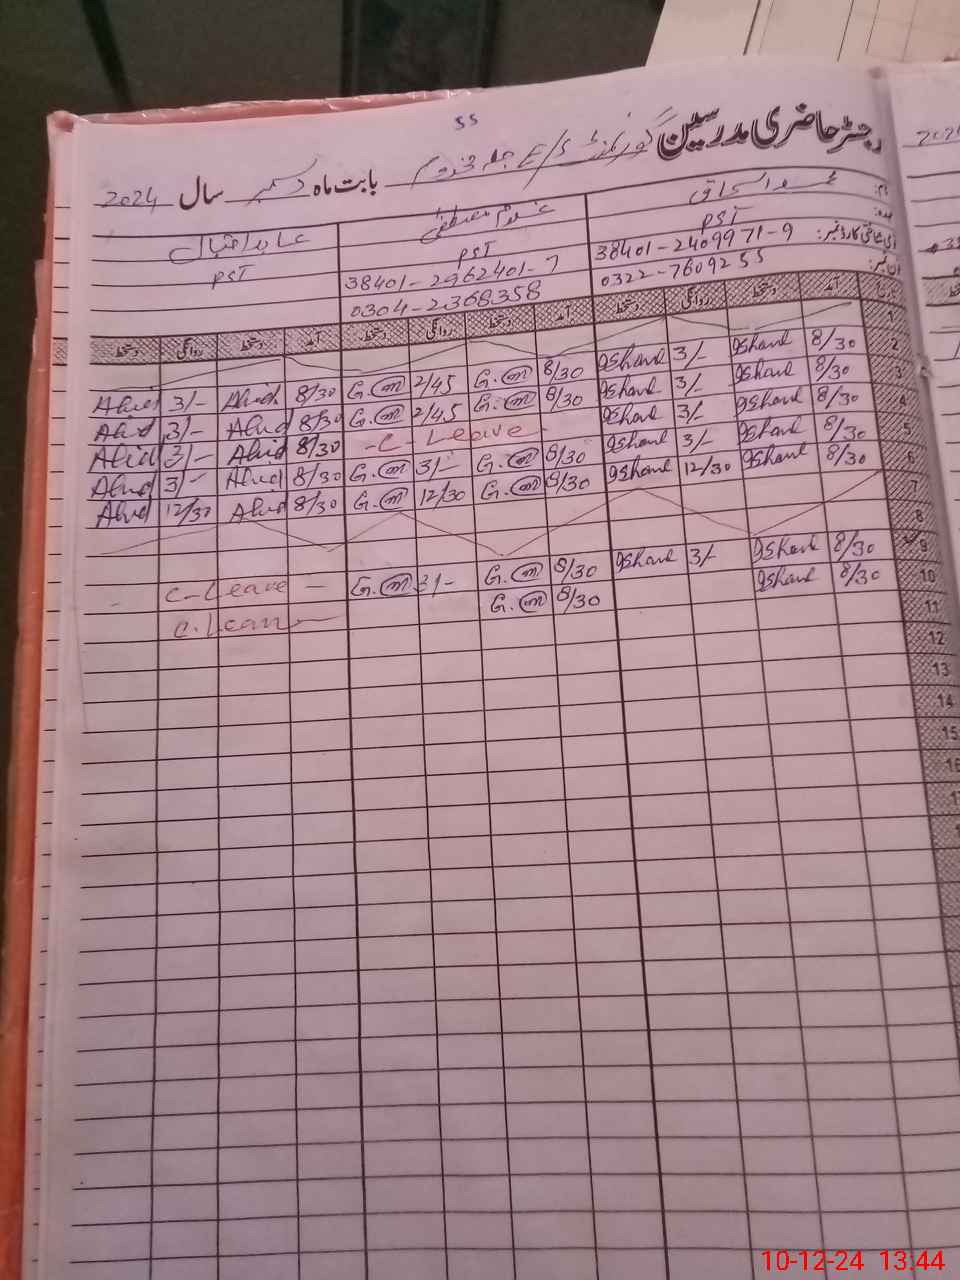 55
رجسٹر حاضری مدرسین گورنمنٹ E/S بابت ماہ دسمبر سال 2024
محمد اسحاق غلام مصطفیٰ عابد اقبال
PST PST PST
شناختی کارڈ نمبر: 38401-2409971-9 38401-2962401-7
0322-7609255 0304-2368358
آمد دستخط روانگی دستخط آمد دستخط روانگی دستخط آمد دستخط روانگی دستخط
1
2 8/30 Ishaul 3/- Ishaul 8/30 G.M 2/45 G.M 8/30 Abid 3/- Abid
3 8/30 Ishaul 3/- Ishaul 8/30 G.M 2/45 G.M 8/30 Abid 3/- Abid
4 8/30 Ishaul 3/- Ishaul -C- Leave - 8/30 Abid 3/- Abid
5 8/30 Ishaul 3/- Ishaul 8/30 G.M 3/- G.M 8/30 Abid 3/- Abid
6 8/30 Ishaul 12/30 Ishaul 8/30 G.M 12/30 G.M 8/30 Abid 12/30 Abid
7
8
9 8/30 Ishaul 3/- Ishaul 8/30 G.M 3/- G.M C-Leave -
10 8/30 Ishaul 8/30 G.M C.Leave
11
12
13
14
15
16
10-12-24 13:44